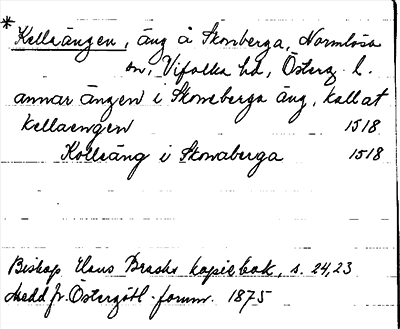 * Kellsängen, äng å Skonberga, Normlösa
sn, Vifolka hd, Österg. l.
annar ängen i Skoneberga äng, kallat
kellaengen 1518
Kollsäng i Skonaberga 1518
Biskop Hans Brasks kopiebok, s. 24,23
Medd fr. Östergötl. fornm. 1875